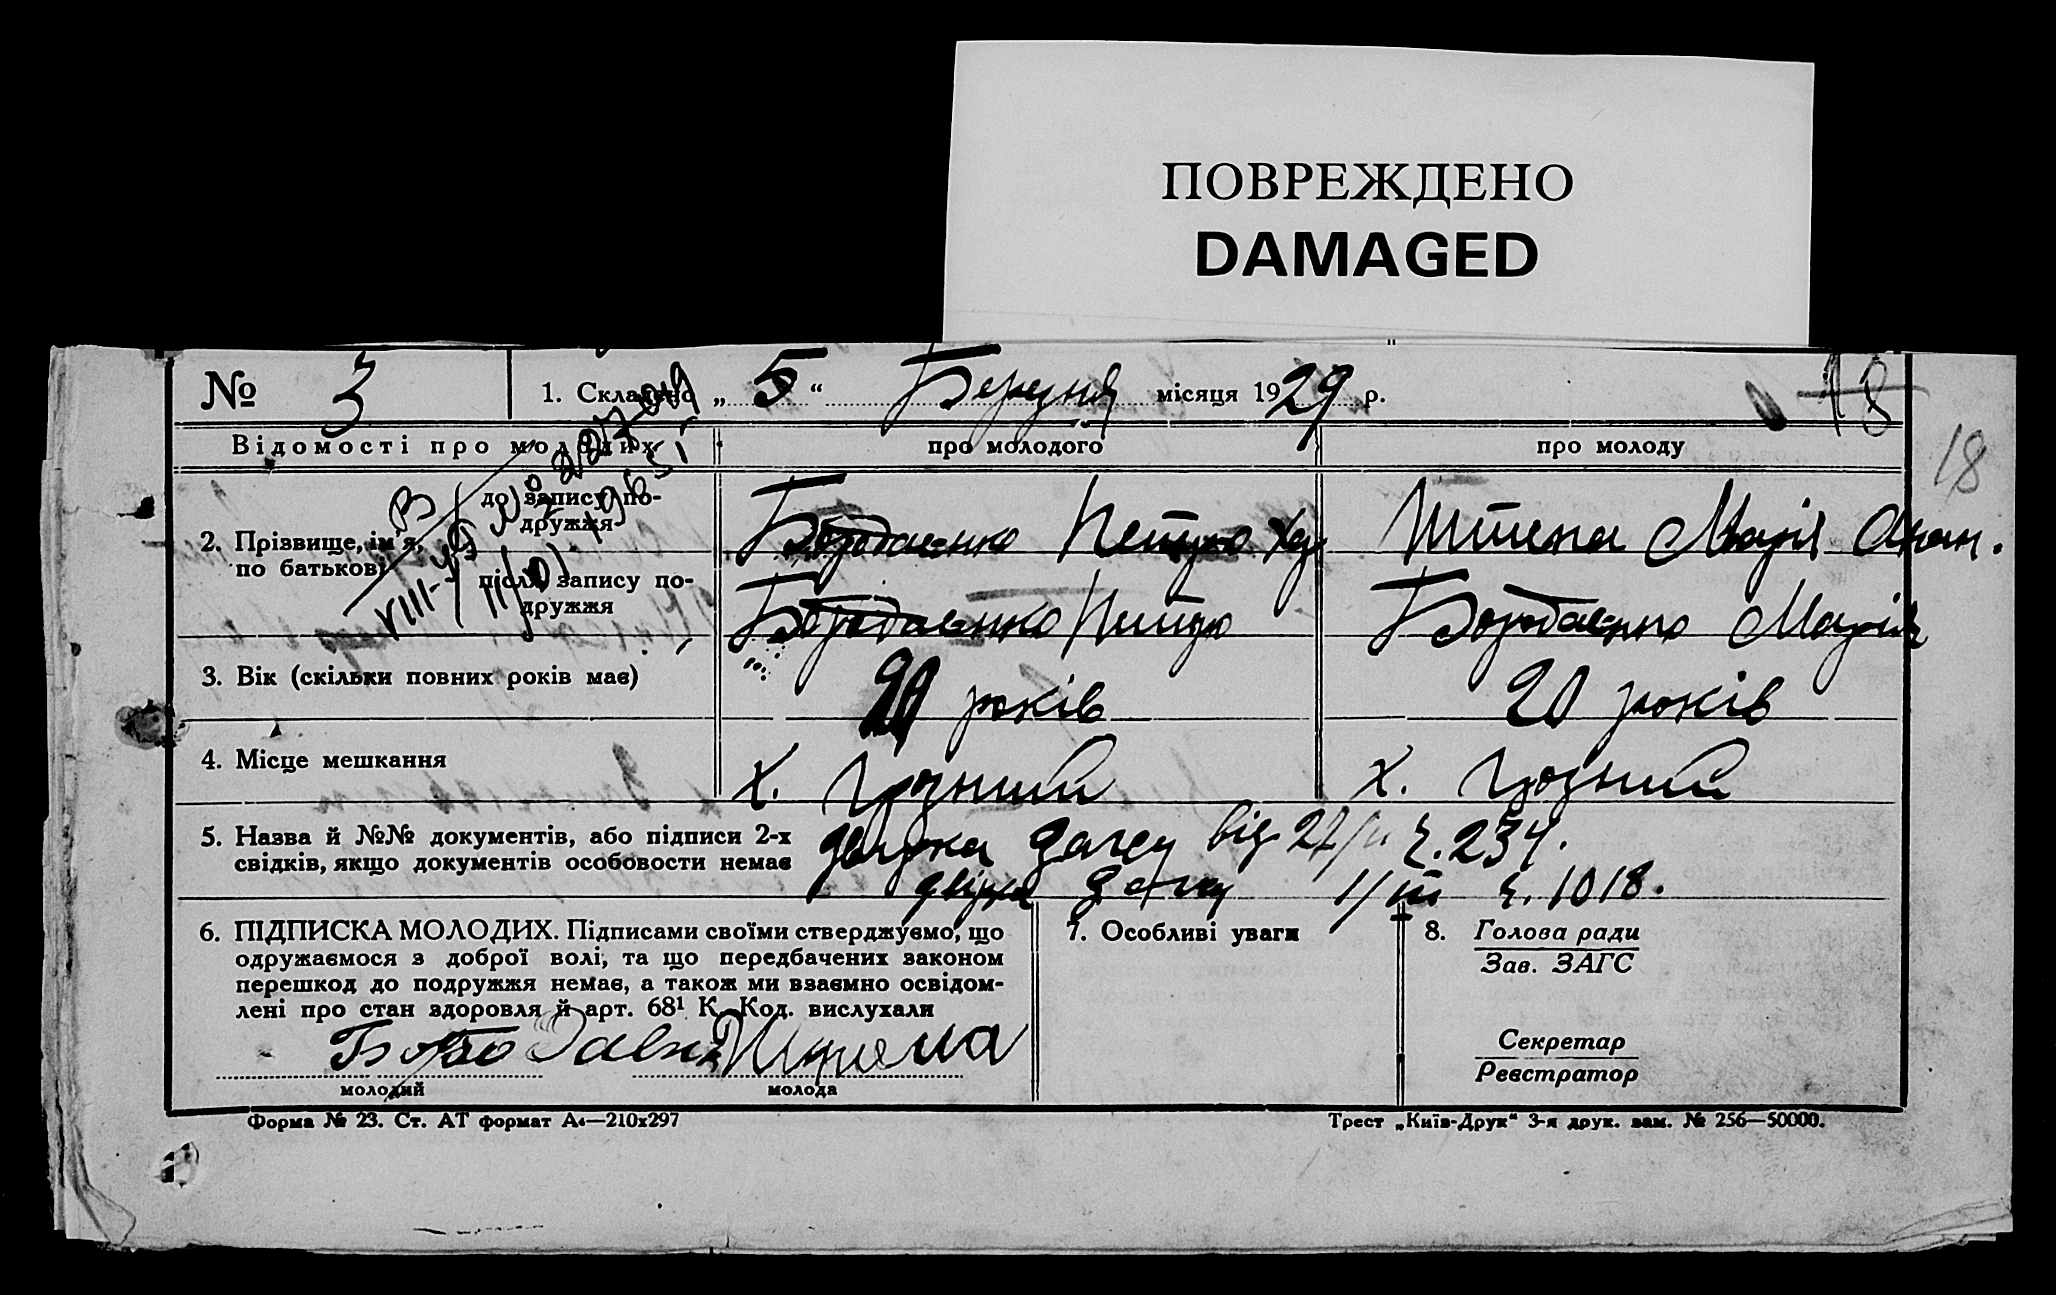 ПОВРЕЖДЕНО
DAMAGED
№ 3
1. Складено „ 5 “ Березня місяця 1929 р.
18
18
Відомості про молодих
про молодого
про молоду
2. Прізвище, ім'я, по батькові
до запису подружжя
Петро
Марія
після запису подружжя
Петро
Марія
3. Вік (скільки повних років має)
20 років
20 років
4. Місце мешкання
х. Грозний
х. Грозний
5. Назва й №№ документів, або підписи 2-х
свідків, якщо документів особовости немає
від 27/II ч. 234.
1/III ч. 1018.
6. ПІДПИСКА МОЛОДИХ. Підписами своїми стверджуємо, що
одружаємося з доброї волі, та що передбачених законом
перешкод до подружжя немає, а також ми взаємно освідом-
лені про стан здоровля й арт. 68¹ К. Код. вислухали
молодий
молода
7. Особливі уваги
8. Голова ради
Зав. ЗАГС
Секретар
Реєстратор
Форма № 23. Ст. АТ формат А₄—210х297
Трест „Київ-Друк“ 3-я друк. зам. № 256—50000.